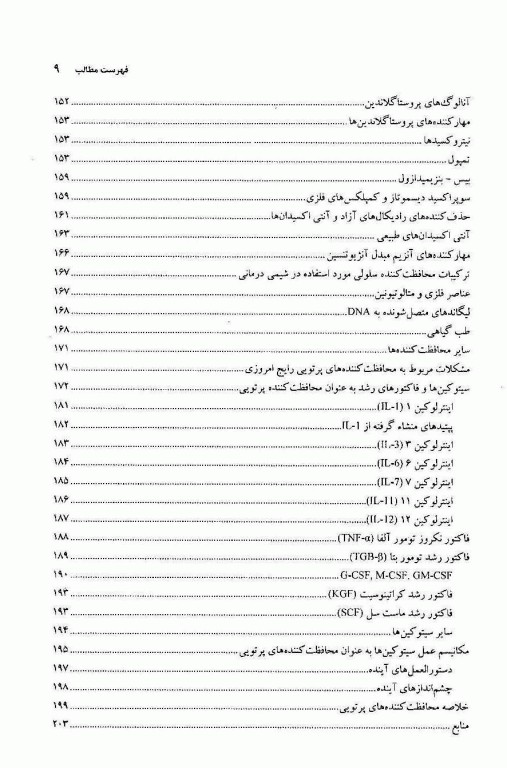 فهرست مطالب ۹
آنالوگ‌های پروستاگلاندین ۱۵۲
مهارکننده‌های پروستاگلاندین‌ها ۱۵۳
نیتروکسیدها ۱۵۳
تمپول ۱۵۳
بیس - بنزیمیدازول ۱۵۹
سوپراکسید دیسموتاز و کمپلکس‌های فلزی ۱۵۹
حذف‌کننده‌های رادیکال‌های آزاد و آنتی اکسیدان‌ها ۱۶۱
آنتی اکسیدان‌های طبیعی ۱۶۳
مهارکننده‌های آنزیم مبدل آنژیوتنسین ۱۶۶
ترکیبات محافظت‌کننده سلولی مورد استفاده در شیمی درمانی ۱۶۷
عناصر فلزی و متالوتیونین ۱۶۷
لیگاندهای متصل‌شونده به DNA ۱۶۸
طب گیاهی ۱۶۸
سایر محافظت‌کننده‌ها ۱۷۱
مشکلات مربوط به محافظت‌کننده‌های پرتویی رایج امروزی ۱۷۱
سیتوکین‌ها و فاکتورهای رشد به عنوان محافظت‌کننده پرتویی ۱۷۲
اینترلوکین ۱ (IL-1) ۱۸۱
پپتیدهای منشاء گرفته از IL-1 ۱۸۲
اینترلوکین ۳ (IL-3) ۱۸۳
اینترلوکین ۶ (IL-6) ۱۸۴
اینترلوکین ۷ (IL-7) ۱۸۵
اینترلوکین ۱۱ (IL-11) ۱۸۶
اینترلوکین ۱۲ (IL-12) ۱۸۷
فاکتور نکروز تومور آلفا (TNF-α) ۱۸۸
فاکتور رشد تومور بتا (TGB-β) ۱۸۹
G-CSF, M-CSF, GM-CSF ۱۹۰
فاکتور رشد کراتینوسیت (KGF) ۱۹۳
فاکتور رشد ماست سل (SCF) ۱۹۳
سایر سیتوکین‌ها ۱۹۴
مکانیسم عمل سیتوکین‌ها به عنوان محافظت‌کننده‌های پرتویی ۱۹۵
دستورالعمل‌های آینده ۱۹۷
چشم‌اندازهای آینده ۱۹۸
خلاصه محافظت‌کننده‌های پرتویی ۱۹۹
منابع ۲۰۳